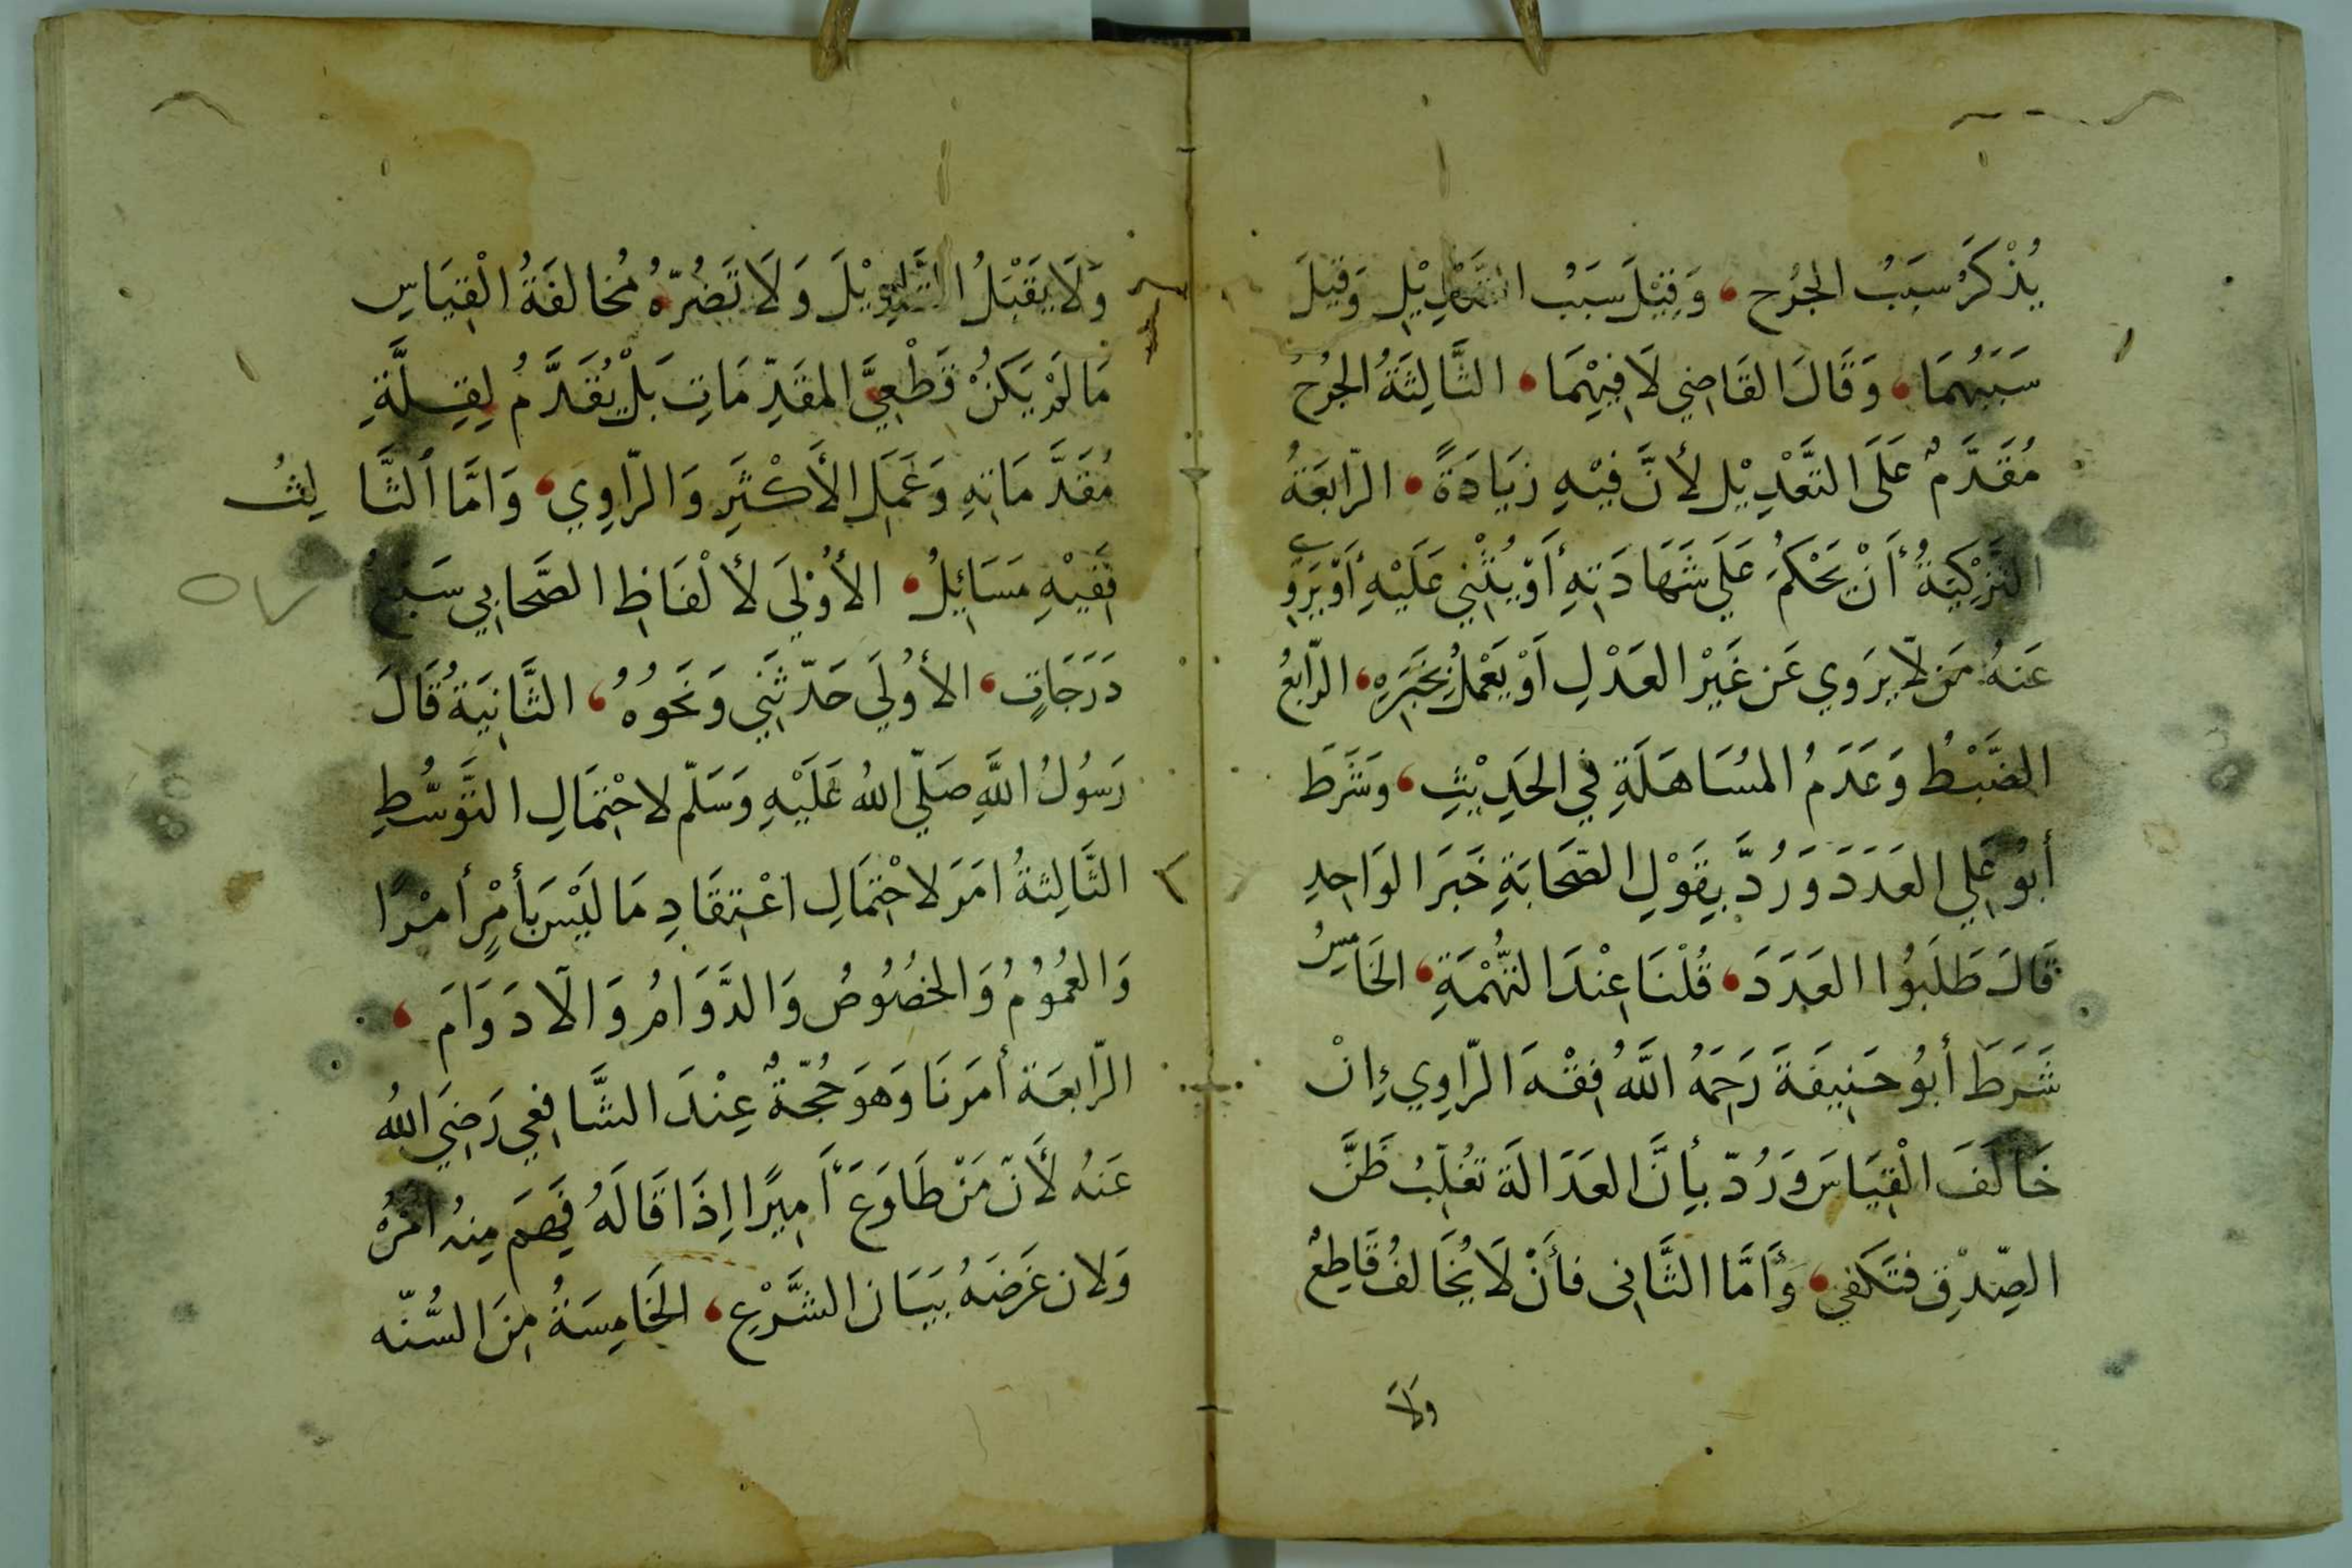 يُذْكَرُ سَبَبُ الجُرْحِ، وَقِيْلَ سَبَبُ التَّعْدِيْلِ وَقِيْلَ
سَبَبُهُمَا، وَقَالَ القَاضِي لَا فِيْهِمَا، الثَّالِثَةُ الجُرْحُ
مُقَدَّمٌ عَلَى التَّعْدِيْلِ لأنَّ فِيْهِ زِيَادَةً، الرّابِعَةُ
التَزْكِيَةُ أَنْ يَحْكُمَ عَلَي شَهَادَتِهِ أَوْ يُثْنِي عَلَيْهِ أَوْ يَرْوِي
عَنهُ مَن لّا يَروِي عَن غَيْرِ العَدْلِ اَوْ يَعْمَلُ بِخَبَرِهِ، الرّابعُ
الضَّبْطُ وَعَدَمُ المُسَاهَلَةِ فِي الحَدِيْثِ، وَشَرَطَ
أبُو عَلِي العَدَدَ وَرُدَّ بِقَوْلِ الصَّحَابَةِ خَبَرَ الوَاحِدِ
قَالَ طَلَبُوا العَدَدَ، قُلْنَا عِنْدَ التُّهْمَةِ، الخَامِسُ
شَرَطَ أبُو حَنِيفَةَ رَحِمَهُ اللَّهُ فِقْهَ الرّاوِي إِنْ
خَالَفَ الْقِيَاسَ وَرُدّ بِأنَّ العَدَالَةَ تُغَلِّبُ ظَنَّ
الصِّدْقِ فتَكْفِي، وَأَمَّا الثَّانِى فأَنْ لَا يُخَالفُ قَاطِعٌ
وَلَا
وَلَا يَقْبَلُ التَّاوِيْلَ وَلَا تَضُرّهُ مُخَالفَةُ الْقِيَاسِ
مَا لَمْ يَكُنْ قَطْعِيَّ المقَدِّمَاتِ بَلْ يُقَدَّمُ لِقِلَّةِ
مُقَدَّمَاتِهِ وَعَمَلِ الأَكْثَرِ وَالرّاوِي، وَامَّا الثَّالِثُ
فَفِيْهِ مَسَائِلُ، الأُوْلَي لأَلْفَاظِ الصَّحَابِي سَبعُ
دَرَجَاتٍ، الأُولَي حَدّثَنِي وَنَحْوُهُ، الثَّانِيَةُ قَالَ
رَسُولُ اللَّهِ صَلّي اللهُ عَلَيْهِ وَسَلّم لاحْتِمَالِ التَّوَسُّطِ
الثَّالِثةُ امَرَ لاحْتِمَالِ اعْتِقَادِ مَا لَيْسَ بأَمْرٍ أمْرًا
وَالعُمُوُمُ وَالخصُوُصُ وَالدَّوَامُ وَالّادَوَامَ،
الرّابعَة أُمِرْنَا وَهوَ حُجّةٌ عِنْدَ الشَّافِعِي رَضِيَ اللهُ
عَنهُ لأَنّ مَنْ طَاوَعَ أَمِيرًا اِذَا قَالَهُ فُهِمَ مِنهُ امْرُهُ
وَلان غَرَضَهُ بَيَان الشَّرْعِ، الخَامِسَةُ مِنَ السُّنّه